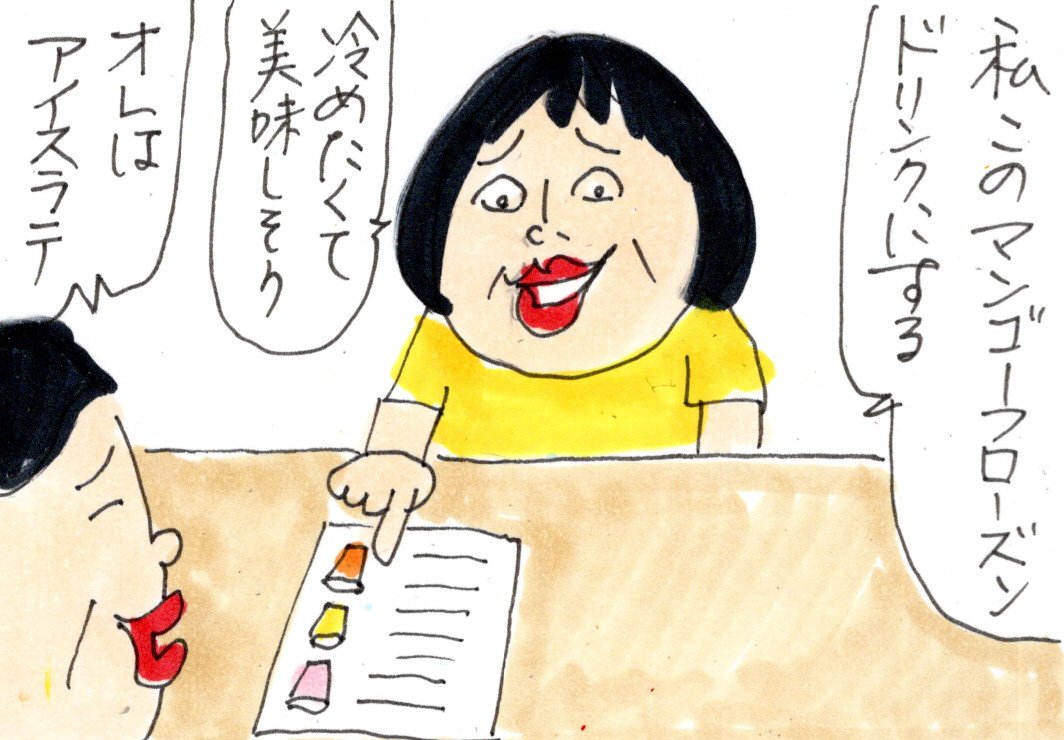 私このマンゴーフローズン
ドリンクにする
冷めたくて
美味しそう
オレは
アイスラテ